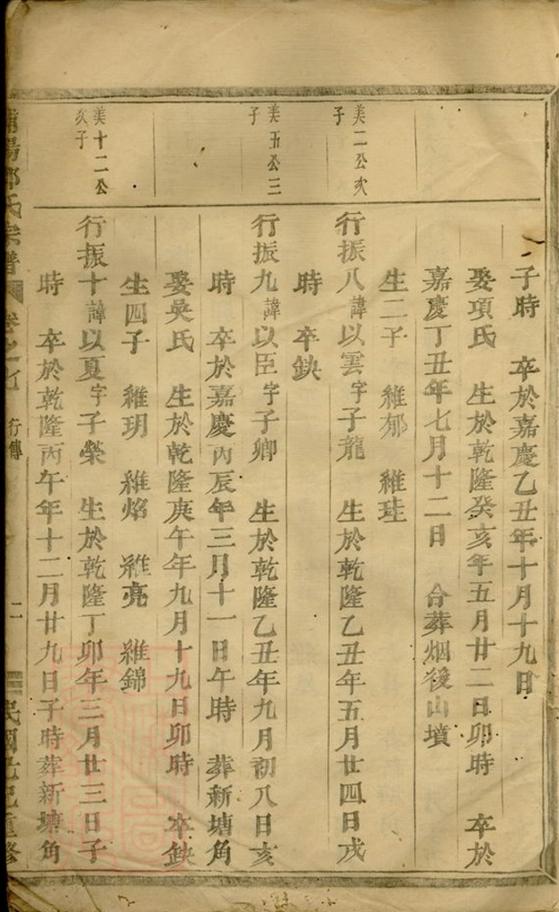 子時 卒於嘉慶乙丑年十月十九日
娶項氏 生於乾隆癸亥年五月廿二日卯時 卒於
嘉慶丁丑年七月十二日 合葬烟後山墳
生二子 維郁 維珪
美二公次子
行振八諱以雲字子龍 生於乾隆乙丑年五月廿四日戌
時 卒缺
美五公三子
行振九諱以臣字子卿 生於乾隆乙丑年九月初八日亥
時 卒於嘉慶丙辰年三月十一日午時 葬新塘角
娶吳氏 生於乾隆庚午年九月十九日卯時 卒缺
生四子 維玥 維焰 維亮 維錦
美十二公次子
行振十諱以夏字子榮 生於乾隆丁卯年三月廿三日子
時 卒於乾隆丙午年十二月廿九日子時葬新塘角
陽 氏宗譜 卷之 行傳 二 民國 巳重修